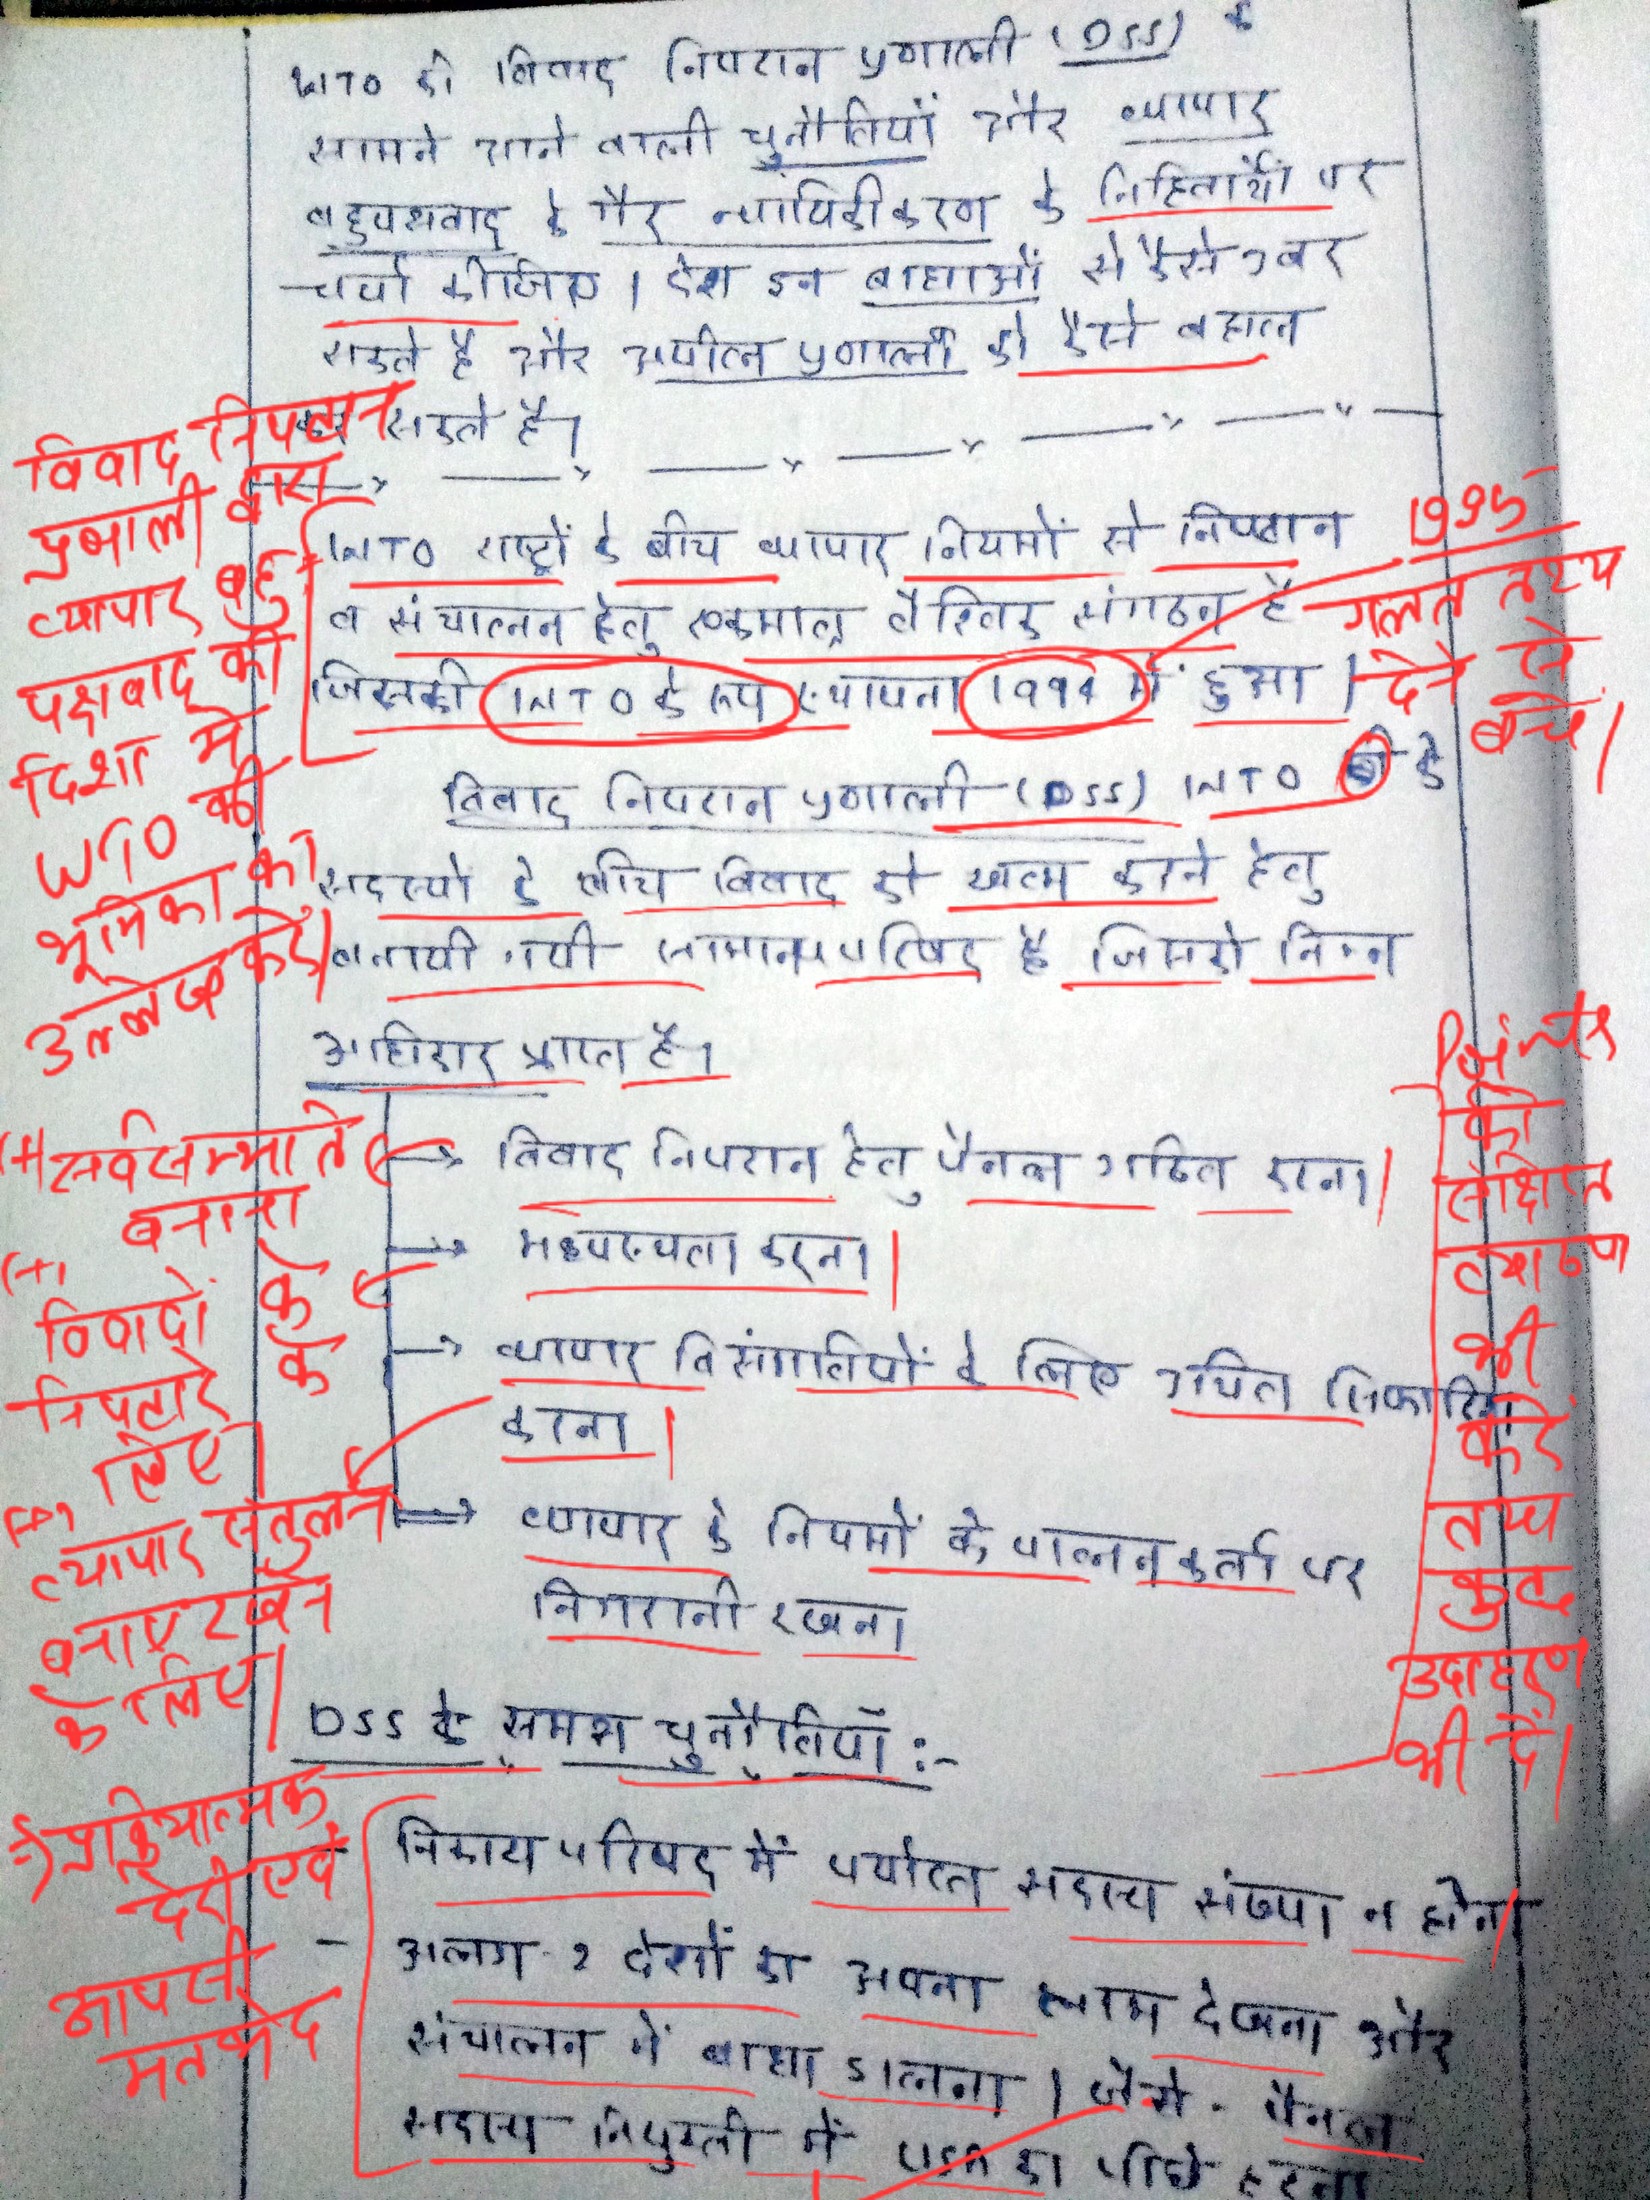 WTO की विवाद निपटान प्रणाली (DSS) के
सामने आने वाली चुनौतियों और व्यापार
बहुपक्षवाद के गैर न्यायिकीकरण के निहितार्थों पर
चर्चा कीजिए। देश इन बाधाओं से कैसे उबर
सकते है और अपील प्रणाली को कैसे बहाल
कर सकते है।
विवाद निपटान
प्रणाली द्वारा
व्यापार बहु
पक्षवाद की
दिशा में
WTO की
भूमिका का
उल्लेख करें।
WTO राष्ट्रों के बीच व्यापार नियमों से निपटान
व संचालन हेतु एकमात्र वैश्विक संगठन है
जिसकी WTO के रूप स्थापना 1994 में हुआ।
1995
गलत तथ्य
देने से
बचें।
विवाद निपटान प्रणाली (DSS) WTO के
सदस्यो के बीच विवाद को खत्म करने हेतु
बनायी गयी सामान्य परिषद है जिसको निम्न
अधिकार प्राप्त है।
(+) सर्वसम्मति
बनाना
→ विवाद निपटान हेतु पैनल गठित करना।
→ मध्यस्थता करना।
(+) विवादों के
निपटारे के
लिए।
→ व्यापार विसंगतियों के लिए उचित सिफारिश
करना।
(+) व्यापार संतुलन
बनाए रखने
के लिए।
→ व्यापार के नियमों के पालनकर्ता पर
निगरानी रखना
को
संक्षिप्त
व्याख्या
भी
करें
तथ्य
कुछ
उदाहरण
भी दें।
DSS के समक्ष चुनौतियाँ :-
→ प्रक्रियात्मक
देरी एवं
आपसी
मतभेद
निकाय परिषद में पर्याप्त सदस्य संख्या न होना
- अलग-2 देशों का अपना लाभ देखना और
संचालन में बाधा डालना। जैसे - पैनल
सदस्य नियुक्ती में USA का पीछे हटना